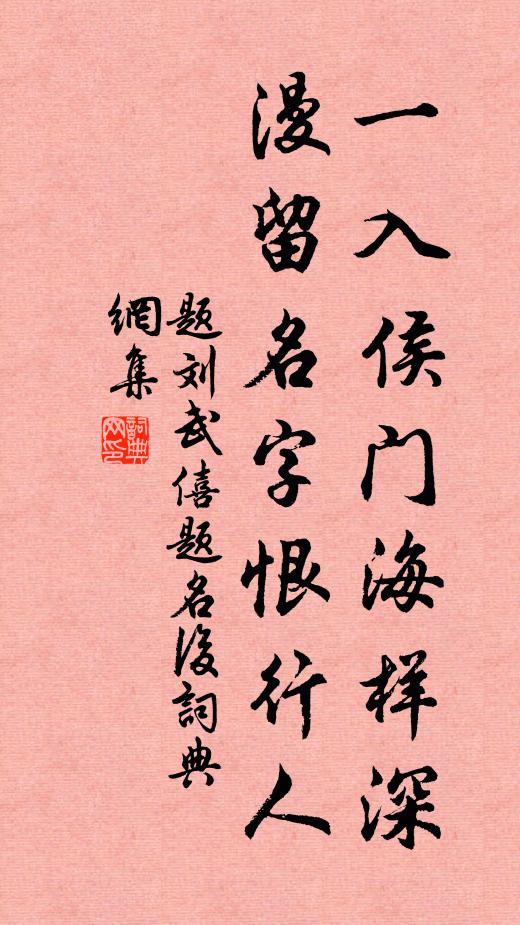 一入侯门海样深
漫留名字恨行人
题刘武僖题名後詞典
網集
詞典
网印